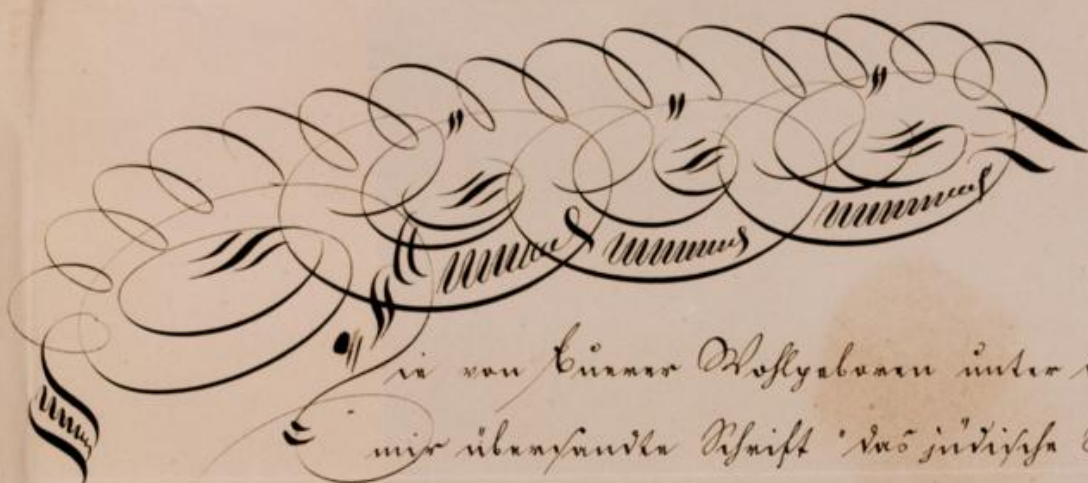 ie von Euerer Wohlgeboren unter
mir übersandte Schrift "das jüdische